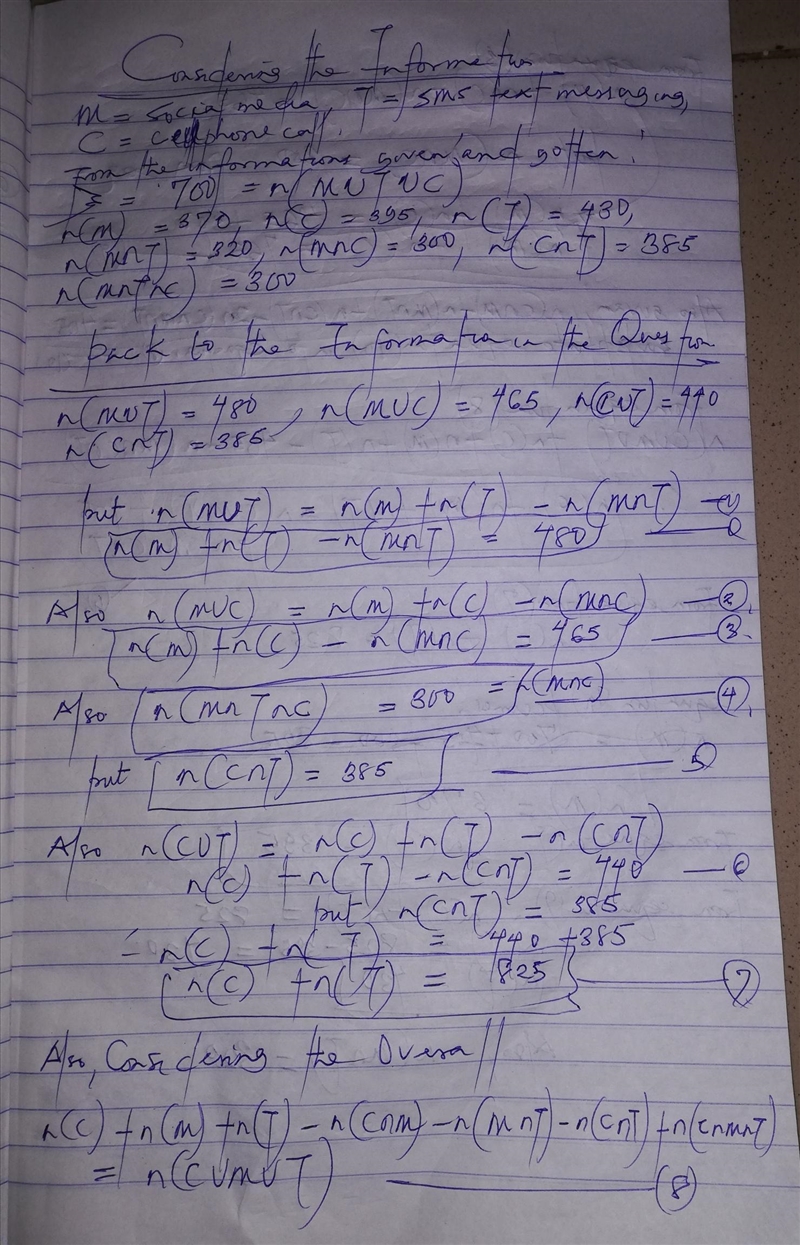 Considering the Information
M = Social media, T = SMS text messaging,
C = Cellphone call.
From the informations given and gotten!
= 700 = n(MUTUC)
n(M) = 370, n(C) = 395, n(T) = 430,
n(MnT) = 320, n(MnC) = 300, n(CnT) = 385
n(MnTnC) = 300
back to the Information in the Question
n(MUT) = 480, n(MUC) = 465, n(CUT) = 440
n(CnT) = 385
but n(MUT) = n(M) + n(T) - n(MnT) -
n(M) + n(T) - n(MnT) = 480 —
Also n(MUC) = n(M) + n(C) - n(MnC) — (2),
n(M) + n(C) - n(MnC) = 465 — (3).
Also n(MnTnC) = 300 = n(MnC) — (4),
but n(CnT) = 385 — 5
Also n(CUT) = n(C) + n(T) - n(CnT)
n(C) + n(T) - n(CnT) = 440 — 6
but n(CnT) = 385
n(C) + n(T) = 440 + 385
n(C) + n(T) = 825 — (7)
Also, Considering the Overall
n(C) + n(M) + n(T) - n(CnM) - n(MnT) - n(CnT) + n(CnMnT)
= n(CUMUT) — (8)